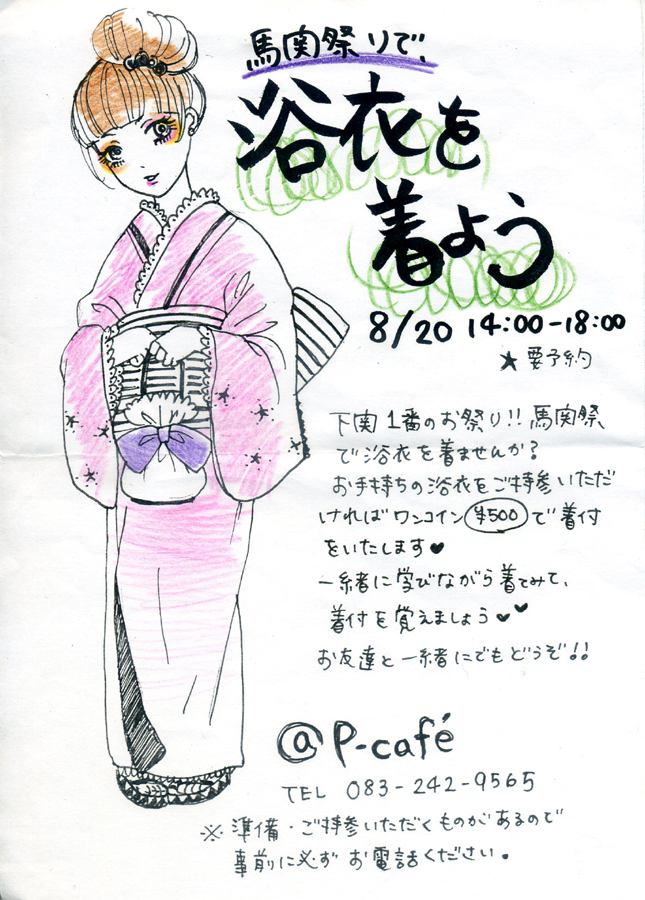 馬関祭りで、
浴衣を
着よう
8/20 14:00-18:00
★要予約
下関1番のお祭り!! 馬関祭
で浴衣を着ませんか?
お手持ちの浴衣をご持参いただ
ければワンコイン ¥500 で着付
をいたします♥
一緒に学びながら着てみて、
着付を覚えましょう♥♥
お友達と一緒にでもどうぞ!!
@P-café
TEL 083-242-9565
※準備・ご持参いただくものがあるので
事前に必ずお電話ください。